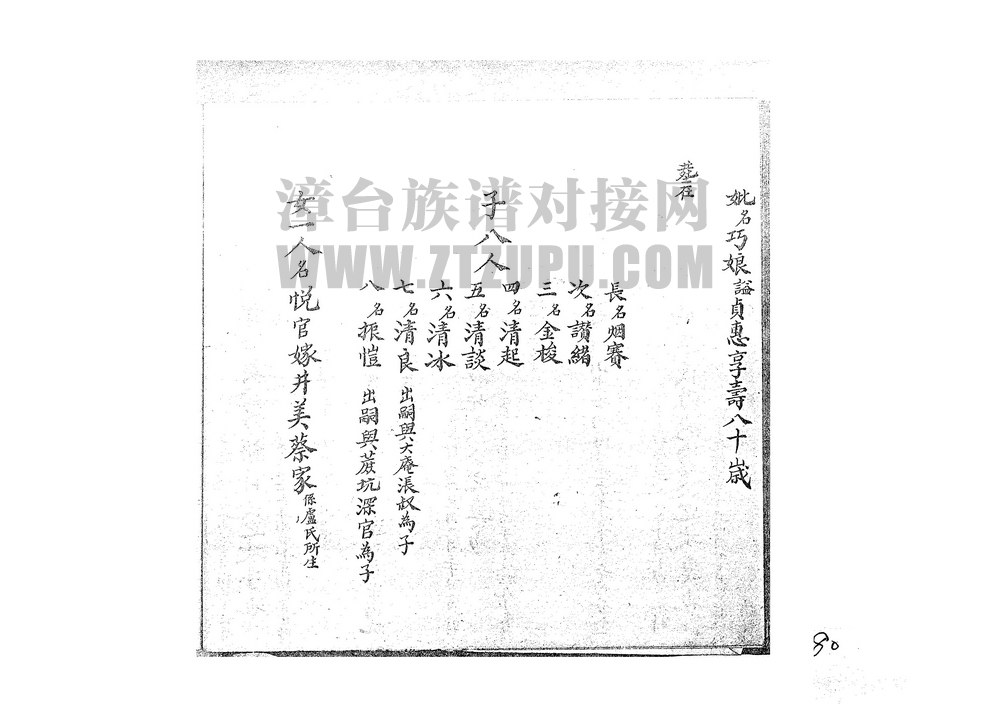 妣名巧娘謚貞惠享壽八十歲
塟在
長名烟賽
次名讃緒
三名金梭
四名清起
子八人
五名清談
六名清冰
七名清良 出嗣與大庵漲叔為子
八名振愷 出嗣與蔗坑深官為子
女一人名悅官嫁井美蔡家 係盧氏所生
漳台族谱对接网
WWW.ZTZUPU.COM
90